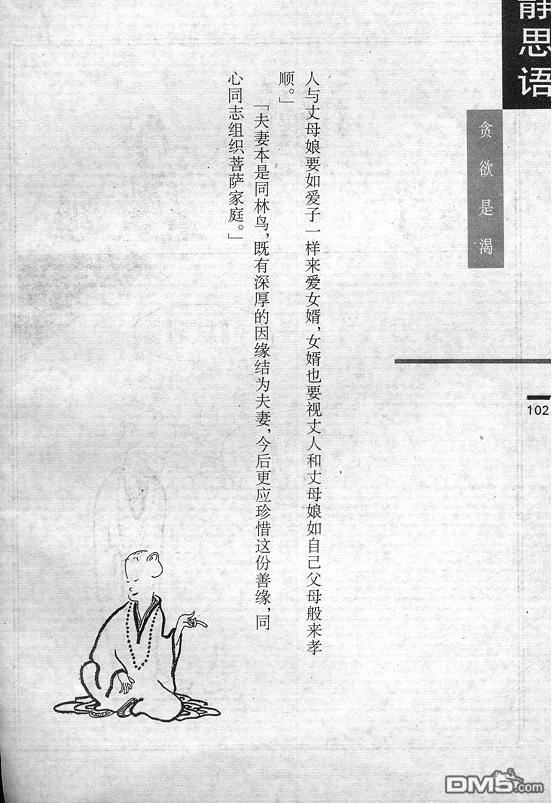 静思语
贪欲是渴
102
人与丈母娘要如爱子一样来爱女婿，女婿也要视丈人和丈母娘如自己父母般来孝
顺。」
「夫妻本是同林鸟，既有深厚的因缘结为夫妻，今后更应珍惜这份善缘，同
心同志组织菩萨家庭。」
DM5.com